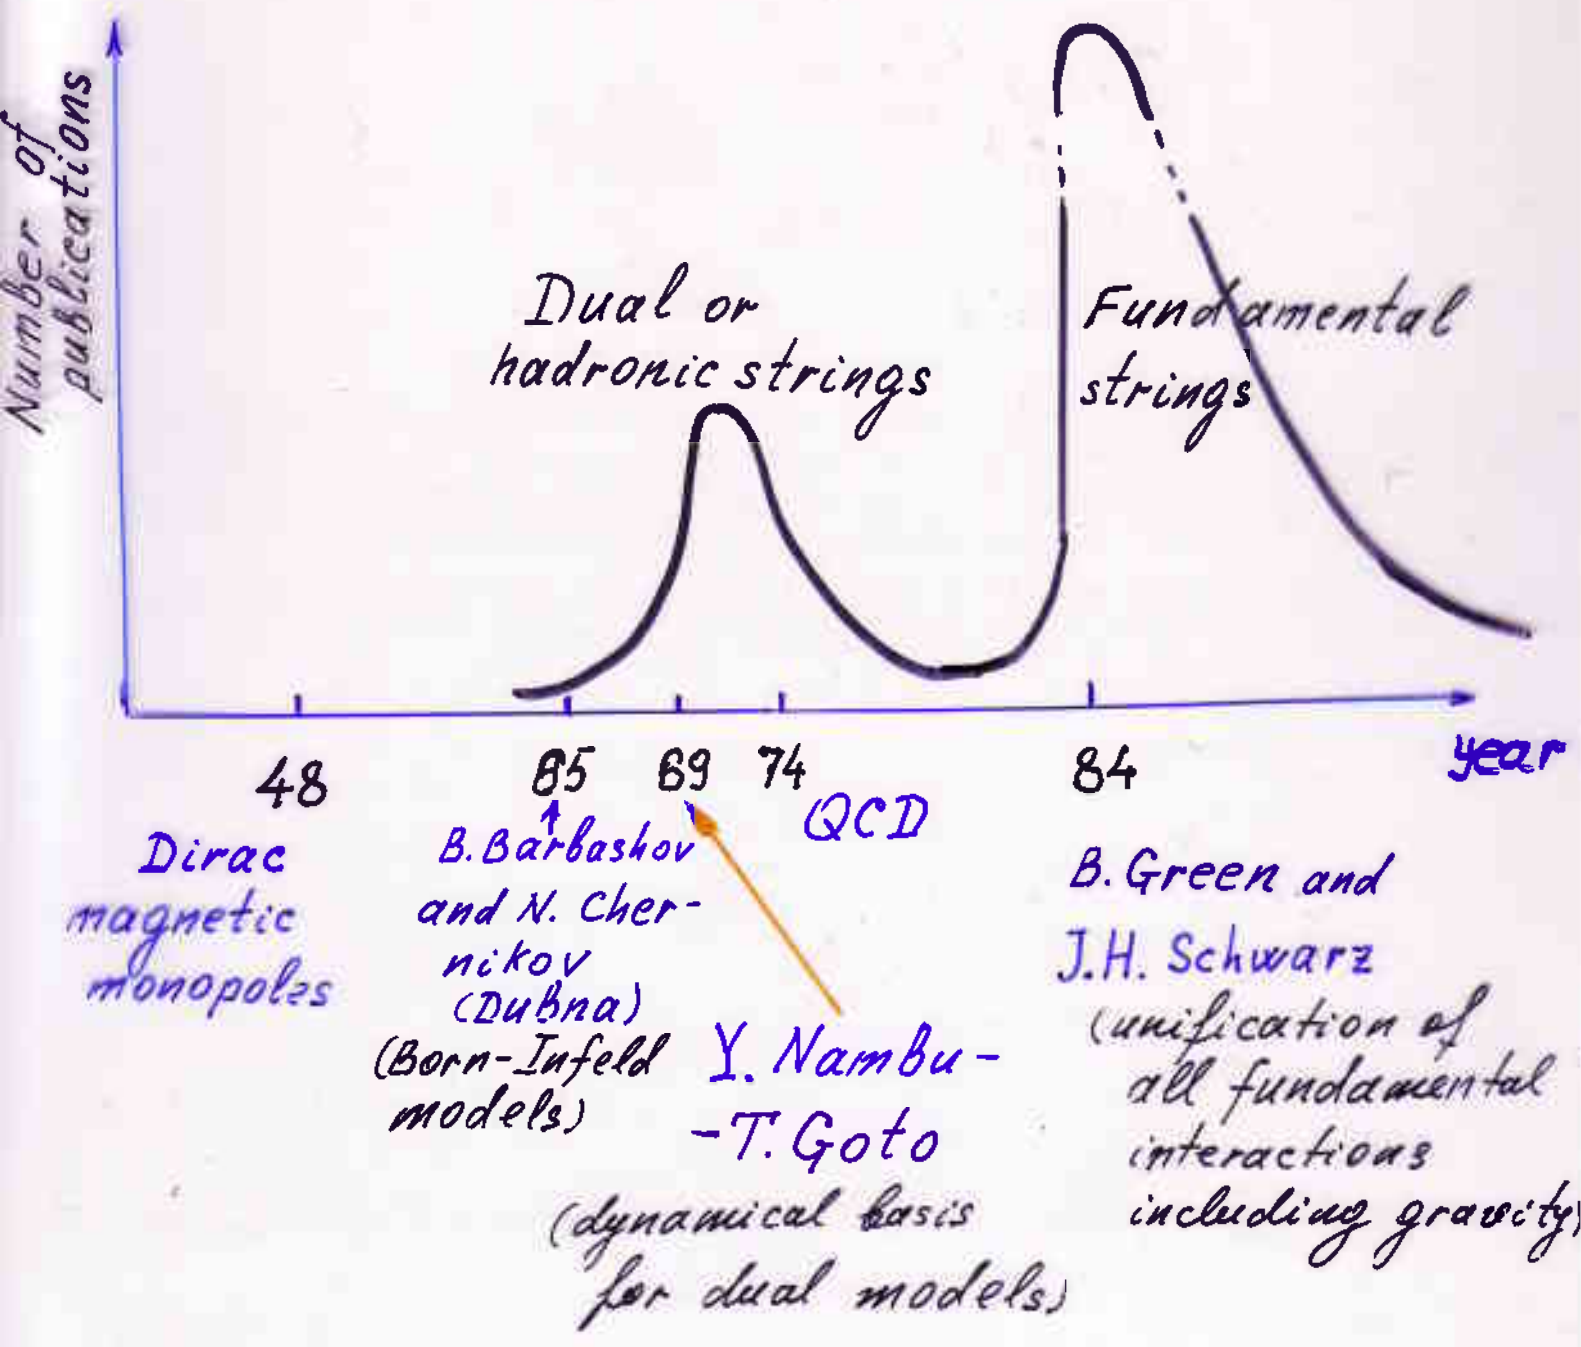 Number of
publications
Dual or
hadronic strings
Fundamental
strings
48
65
69
74
84
year
QCD
Dirac
magnetic
monopoles
B. Barbashov
and N. Cher-
nikov
(Dubna)
(Born-Infeld
models)
Y. Nambu-
-T. Goto
(dynamical basis
for dual models)
B. Green and
J.H. Schwarz
(unification of
all fundamental
interactions
including gravity)